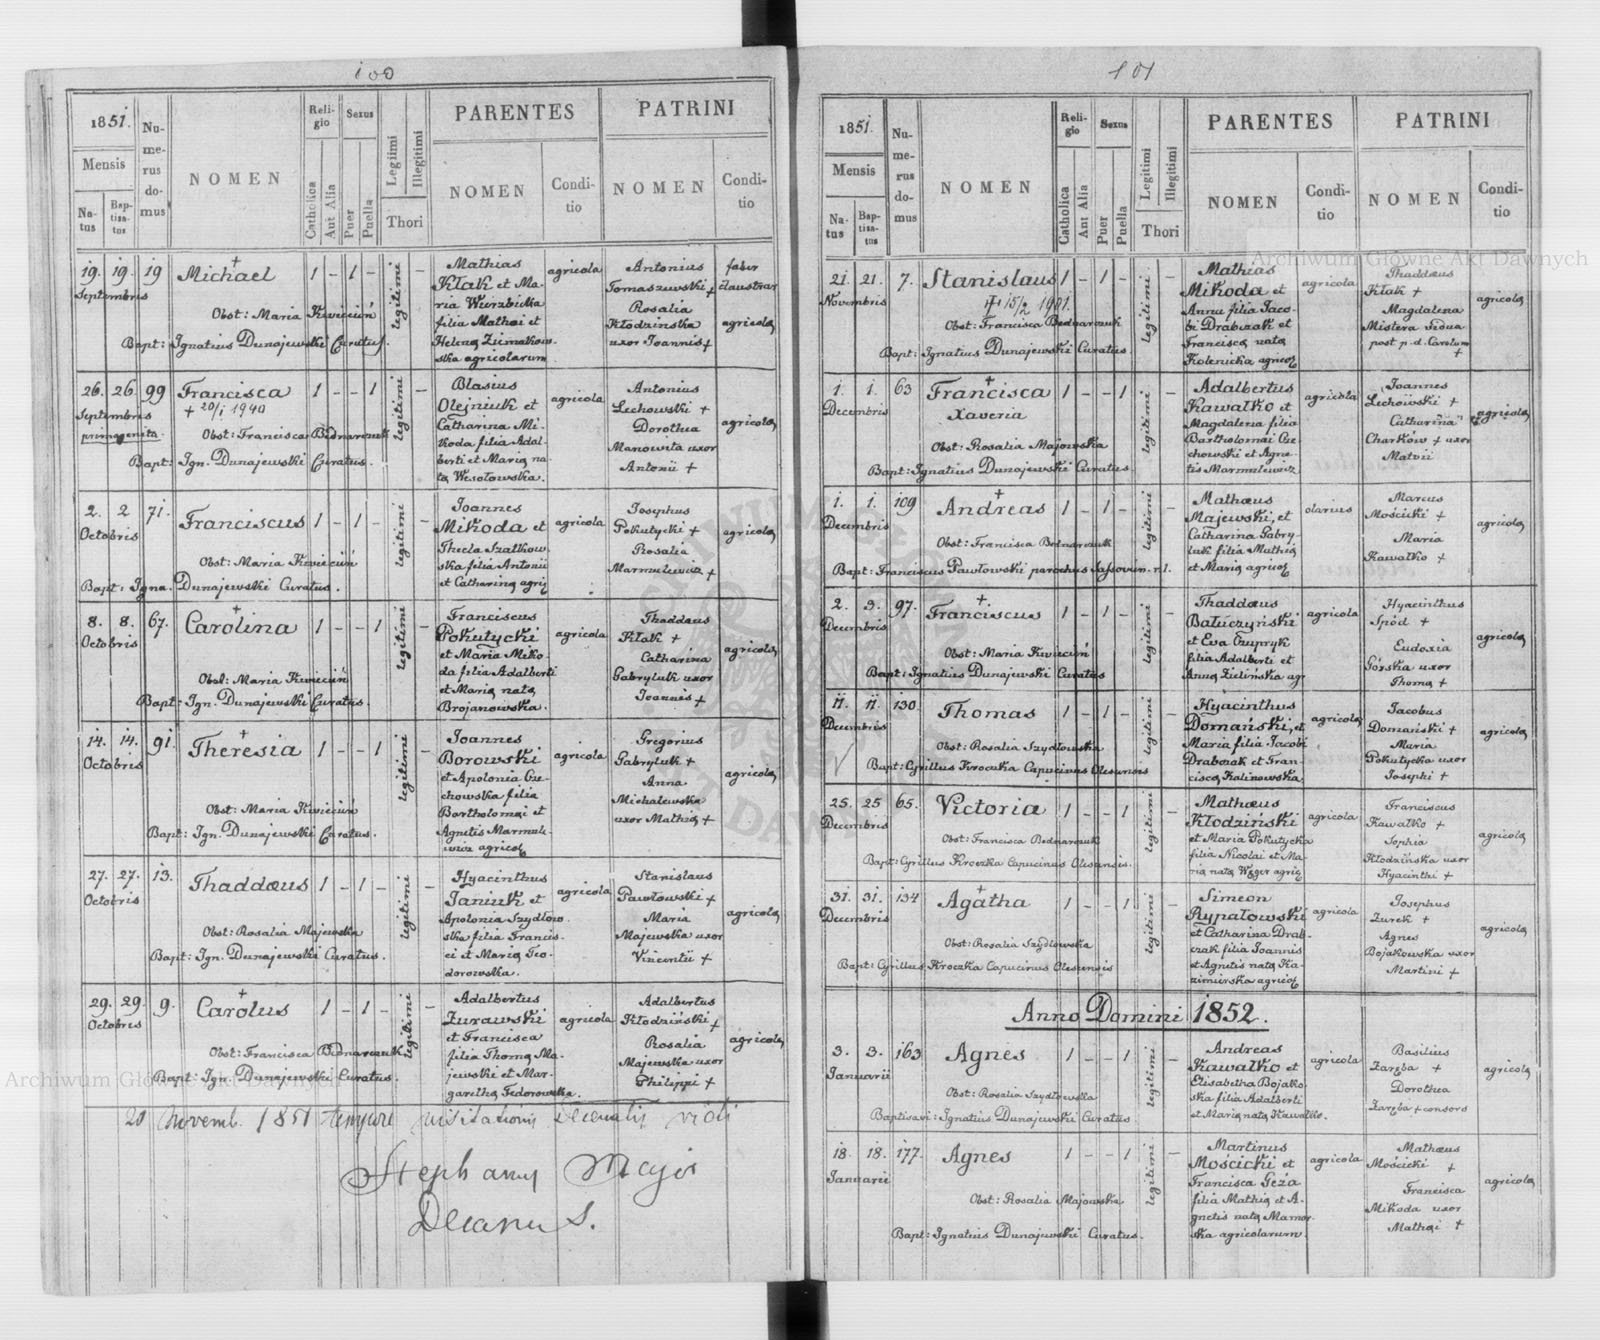 100
1851.
Mensis
Na-
tus
Bap-
tisa-
tus
Nu-
me-
rus
do-
mus
NOMEN
Reli-
gio
Catholica
Aut Alia
Sexus
Puer
Puella
Legitimi
Illegitimi
Thori
PARENTES
NOMEN
Condi-
tio
PATRINI
NOMEN
Condi-
tio
19. 19. 19
Septembris
Michael
1 – 1 –
legitimi
–
Obst: Maria Kwiecień
Bapt: Ignatius Dunajewski Curatus.
Mathias
Kłak et Ma-
ria Wierzbicka
filia Mathæi et
agricola
Antonius
Tomaszewski +
Rosalia
Kłodzinska
uxor Joannis +
faber
claustrar
agricola
26. 26. 99
Septembris
primogenita.
Francisca
+ 20/1 1940
1 – – 1
legitimi
–
Obst: Francisca Bednarczuk
Bapt: Ign. Dunajewski Curatus.
Blasius
Olejniuk et
Catharina Mi-
koda filia Adal-
berti et Maria na-
ta Wesołowska.
agricola
Antonius
Lechowski +
Dorothea
Manowita uxor
Antonii +
agricola
2. 2 71.
Octobris
Franciscus
1 – 1 –
legitimi
–
Obst: Maria Kwiecień
Bapt: Igna. Dunajewski Curatus.
Joannes
Mikoda et
Thecla Szałkow-
ska filia Antonii
et Catharina agric
agricola
Josephus
Pokutycki +
Rosalia
Marmulewicz +
agricola
8. 8. 67.
Octobris
Carolina
1 – – 1
legitimi
–
Obst: Maria Kwiecień
Bapt: Ign. Dunajewski Curatus.
Franciscus
Pokutycki
et Maria Miko-
da filia Adalberti
et Maria nata
Brojanowska.
agricola
Thaddaeus
Kłak +
Catharina
Gabryluk uxor
Joannis +
agricola
14. 14. 91.
Octobris
Theresia
1 – – 1
legitimi
–
Obst: Maria Kwiecień
Bapt: Ign. Dunajewski Curatus.
Joannes
Borowski
et Apolonia Cze-
chowska filia
Bartholomæi et
Agnetis Marmule-
wicz agricol
agricola
Gregorius
Gabryluk +
Anna
Michalewska
uxor Mathia +
agricola
27. 27. 13.
Octobris
Thaddæus
1 – 1 –
legitimi
–
Obst: Rosalia Majewska
Bapt: Ign. Dunajewski Curatus.
Hyacinthus
Janiuk et
Apolonia Szydłow-
ska filia Francis-
ci et Maria Teo-
dorowska.
agricola
Stanislaus
Pawłowski +
Maria
Majewska uxor
Vincentii +
agricola
29. 29. 9.
Octobris
Carolus
1 – 1 –
legitimi
–
Obst: Francisca Bednarczuk
Bapt: Ign. Dunajewski Curatus.
Adalbertus
Żurawski
et Francisca
filia Thoma Ma-
jewski et Mar-
garetha Fedorowska.
agricola
Adalbertus
Kłodziński +
Rosalia
Majewska uxor
Philippi +
agricola
20 Novemb. 1851 tempore visitationis Decanalis vidi
Stephanus Major
Decanus.
101
1851.
Mensis
Na-
tus
Bap-
tisa-
tus
Nu-
me-
rus
do-
mus
NOMEN
Reli-
gio
Catholica
Aut Alia
Sexus
Puer
Puella
Legitimi
Illegitimi
Thori
PARENTES
NOMEN
Condi-
tio
PATRINI
NOMEN
Condi-
tio
21. 21. 7.
Novembris
Stanislaus
+ 15/2 1901.
1 – 1 –
legitimi
–
Obst: Francisca Bednarczuk
Bapt: Ignatius Dunajewski Curatus.
Mathias
Mikoda et
Anna filia Jaco-
bi Drabczak et
Francisca nata
Kolenicka agricol
agricola
Thaddæus
Kłak +
Magdalena
Mistera vidua
post p. d. Carolum
+
agricola
1. 1. 63
Decembris
Francisca
Xaveria
1 – – 1
legitimi
–
Obst: Rosalia Majewska
Bapt: Ignatius Dunajewski Curatus.
Adalbertus
Kawałko et
Magdalena filia
Bartholomæi Cze-
chowski et Agne-
tis Marmulewicz
agricola
Joannes
Lechowski +
Catharina
Charkow + uxor
Matvii
agricola
1. 1. 109
Decembris
Andreas
1 – 1 –
legitimi
–
Obst: Francisca Bednarczuk
Bapt: Franciscus Pawłowski parochus Sassovien. r. l.
Mathæus
Majewski, et
Catharina Gabry-
luk filia Mathia
et Maria agricol
olarius
Marcus
Mościcki +
Maria
Kawałko +
agricola
2. 3. 97.
Decembris
Franciscus
1 – 1 –
legitimi
–
Obst: Maria Kwiecień
Bapt: Ignatius Dunajewski Curatus
Thaddæus
Bałuczyński
et Eva Czupryk
filia Adalberti et
Anna Zielińska agr
agricola
Hyacinthus
Spód +
Eudoxia
Górska uxor
Thoma +
agricola
11. 11. 130.
Decembris
Thomas
1 – 1 –
legitimi
–
Obst: Rosalia Szydłowska
Bapt: Cyrillus Kroczka Capucinus Olescensis
Hyacinthus
Domański, et
Maria filia Jacobi
Drabczak et Fran-
cisca Kalinowska
agricola
Jacobus
Domański +
Maria
Pokutycka uxor
Josephi +
agricola
25. 25 65.
Decembris
Victoria
1 – – 1
legitimi
–
Obst: Francisca Bednarczuk
Bapt: Cyrillus Kroczka Capucinus Olescensis.
Mathæus
Kłodziński
et Maria Pokutycka
filia Nicolai et Ma-
ria nata Węger agric
agricola
Franciscus
Kawałko +
Sophia
Kłodzińska uxor
Hyacinthi +
agricola
31. 31. 134
Decembris
Agatha
1 – – 1
legitimi
–
Obst: Rosalia Szydłowska
Bapt: Cyrillus Kroczka Capucinus Olescensis
Simeon
Rypałowski
et Catharina Drab-
czak filia Joannis
et Agnetis nata Ka-
zimierska agricol
agricola
Josephus
Żurek +
Agnes
Bojakowska uxor
Martini +
agricola
Anno Domini 1852.
3. 3. 163
Januarii
Agnes
1 – – 1
legitimi
–
Obst: Rosalia Szydłowska
Baptisavi: Ignatius Dunajewski Curatus.
Andreas
Kawałko et
Elisabetha Bojako-
ska filia Adalberti
et Maria nata Kawałko.
agricola
Basilius
Zaręba +
Dorothea
Zaręba + consors
agricola
18. 18. 177.
Januarii
Agnes
1 – – 1
legitimi
–
Obst: Rosalia Majewska
Bapt: Ignatius Dunajewski Curatus.
Martinus
Mościcki et
Francisca Géza
filia Mathia et A-
gnetis nata Mamor-
ska agricolarum.
agricola
Mathæus
Mościcki +
Francisca
Mikoda uxor
Mathæi +
agricola
Archiwum Główne Akt Dawnych
Archiwum Główne Akt Dawnych